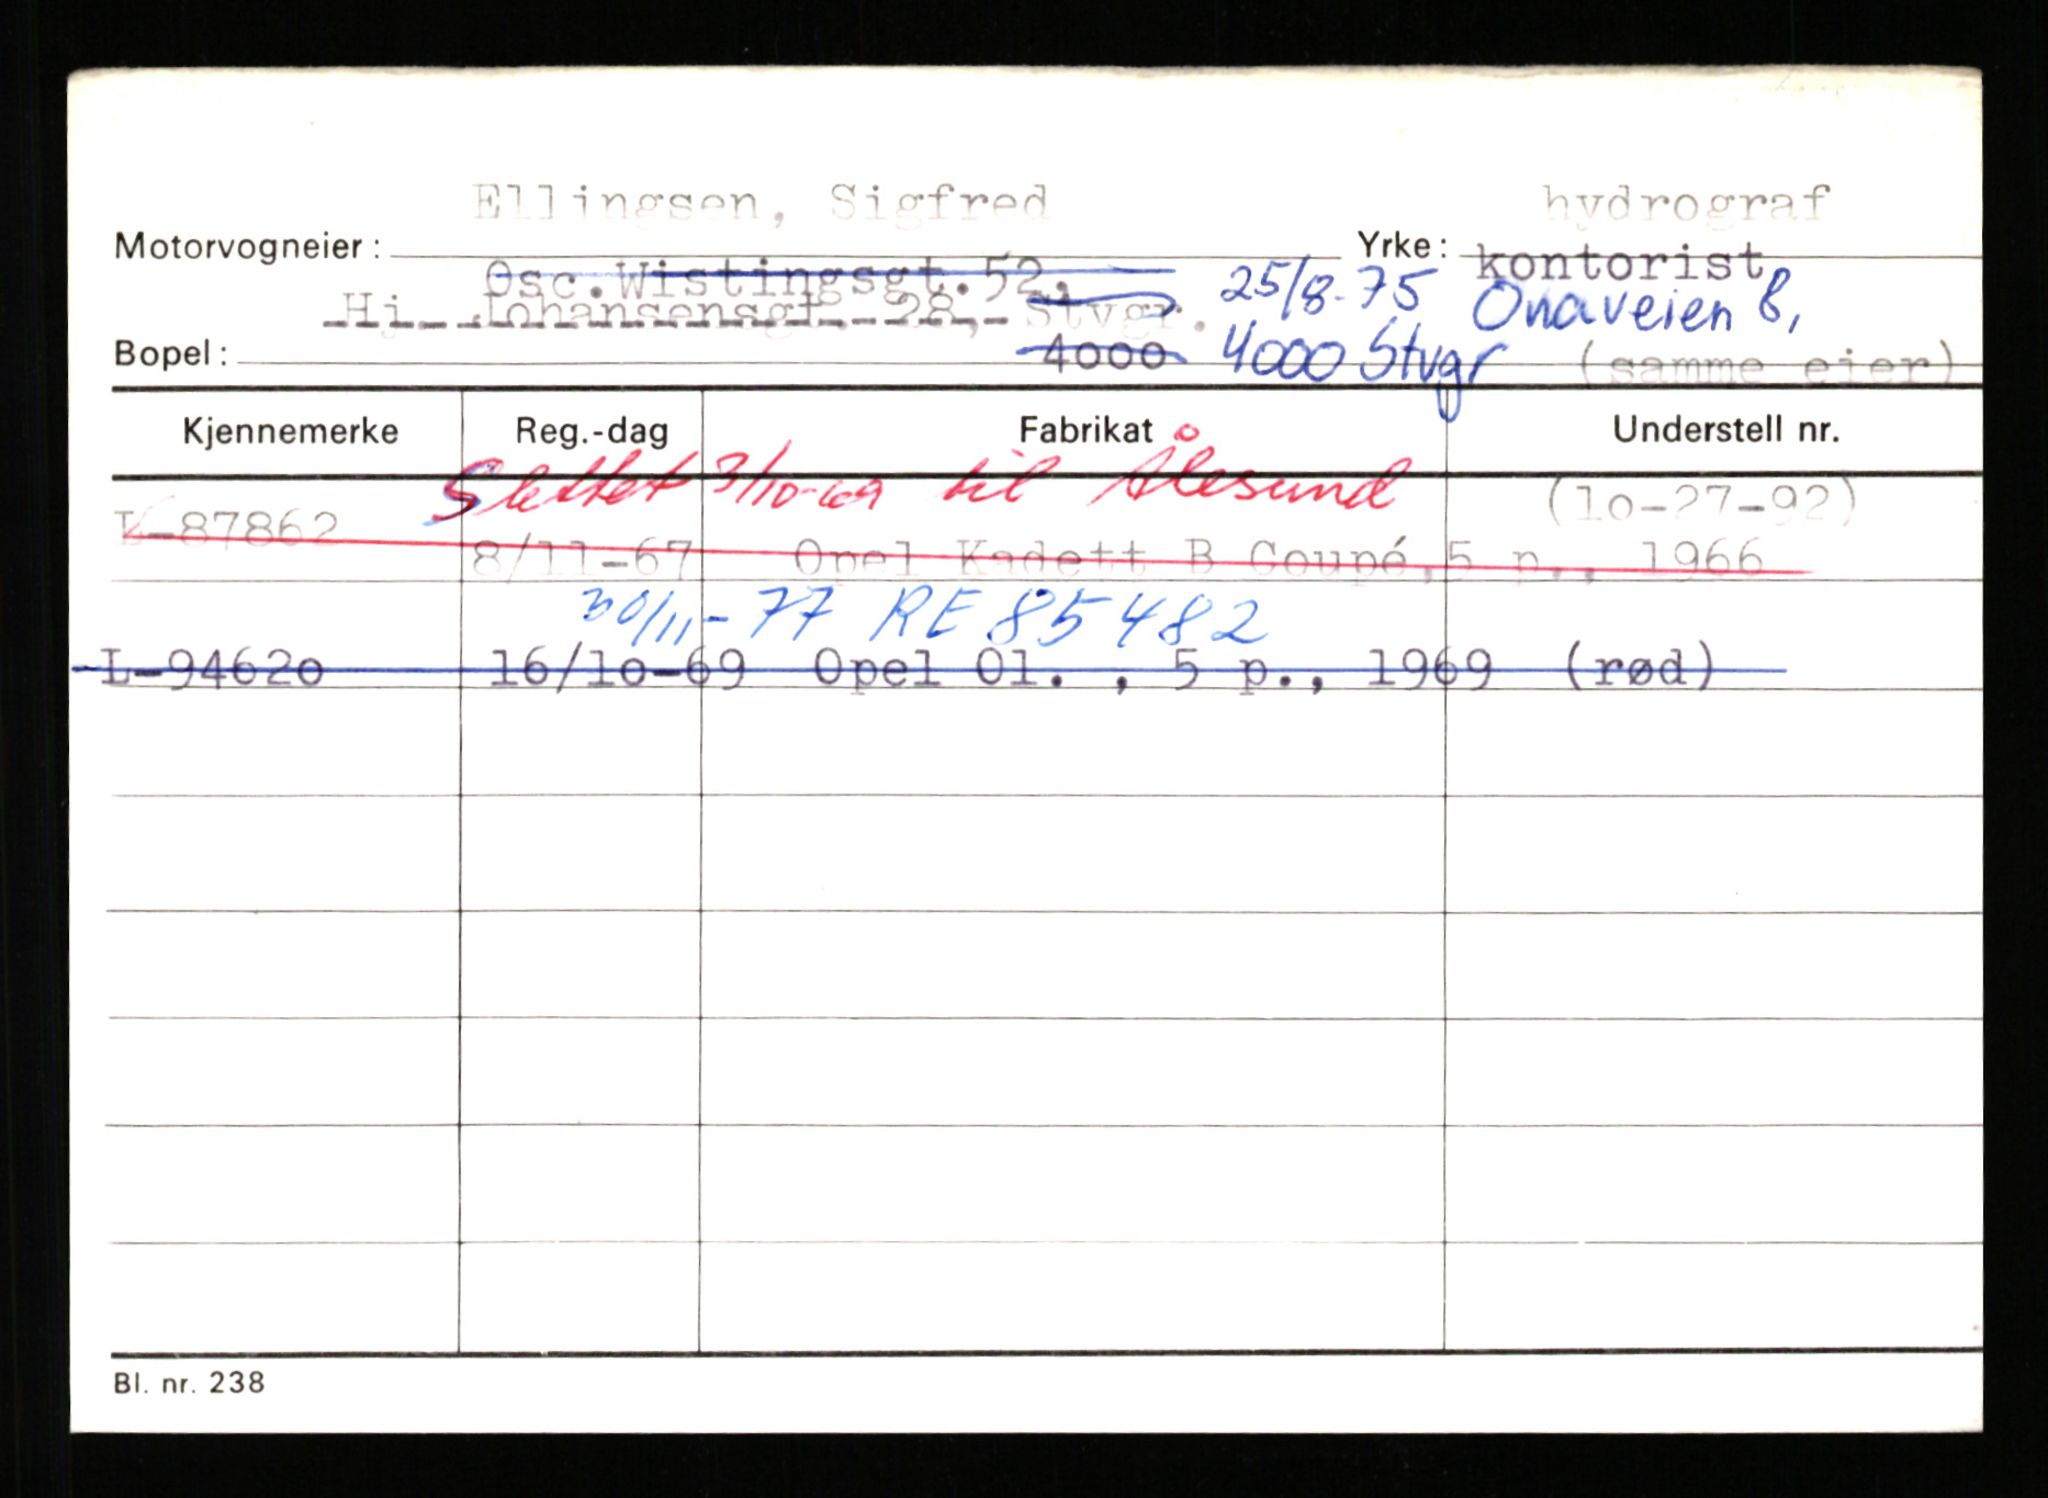 Ellingsen, Sigfred hydrograf
Motorvogneier: Yrke: kontorist
Osc.Wistingsgt.52, 25/8-75 Onaveien 8,
Hj. Johansensgt. 28, Stvgr.
Bopel: 4000 4000 Stvgr (samme eier)
Kjennemerke Reg.-dag Fabrikat Understell nr.
Slettet 3/10-69 til Ålesund (lo-27-92)
L-87862 8/11-67 Opel Kadett B Coupé,5 p., 1966
30/11-77 RE 85482
L-9462o 16/lo-69 Opel Ol. , 5 p., 1969 (rød)
Bl. nr. 238